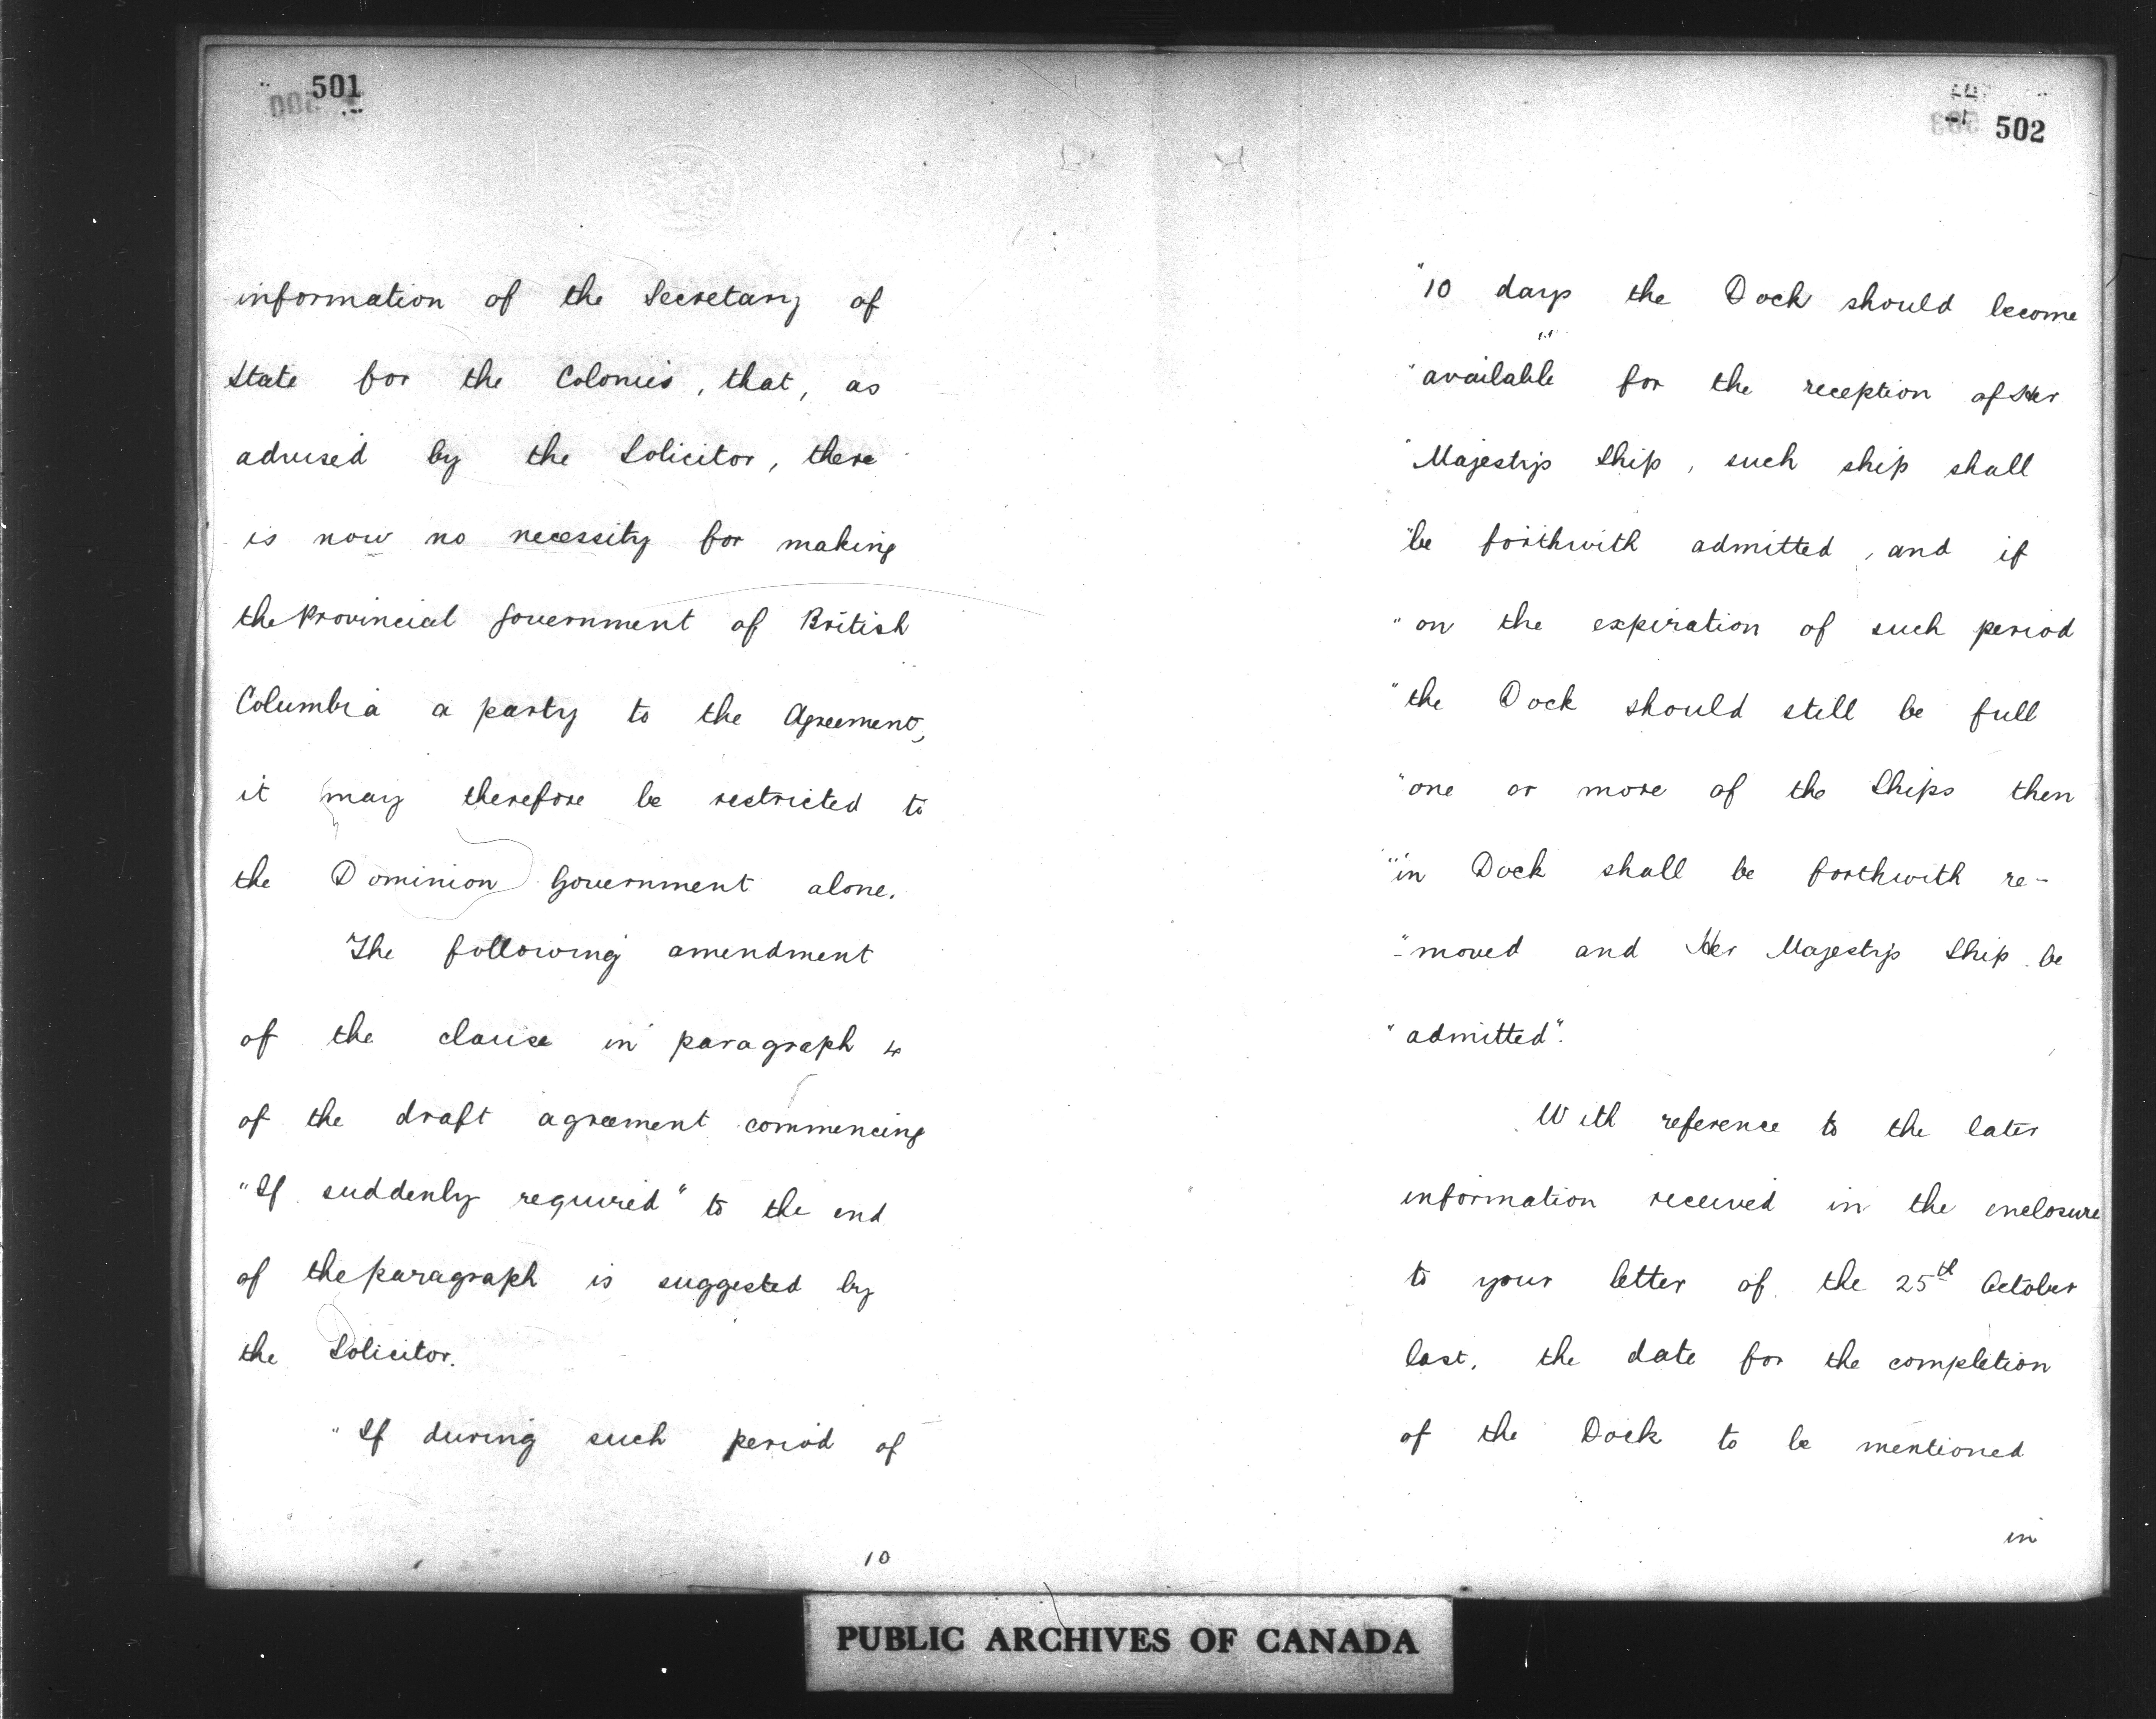 501
information of the Secretary of
State for the Colonies, that, as
advised by the Solicitor, there
is now no necessity for making
the Provincial Government of British
Columbia a party to the Agreement,
it may therefore be restricted to
the Dominion Government alone.
The following amendment
of the clause in paragraph 4
of the draft agreement commencing
"If suddenly required" to the end
of the paragraph is suggested by
the Solicitor.
"If during such period of
10
502
"10 days the Dock should become
"available for the reception of Her
"Majestys Ship, such ship shall
"be forthwith admitted, and if
"on the expiration of such period
"the Dock should still be full
"one or more of the Ships then
"in Dock shall be forthwith re-
"moved and Her Majestys Ship be
"admitted".
With reference to the later
information received in the enclosure
to your letter of the 25th October
last, the date for the completion
of the Dock to be mentioned
in
PUBLIC ARCHIVES OF CANADA